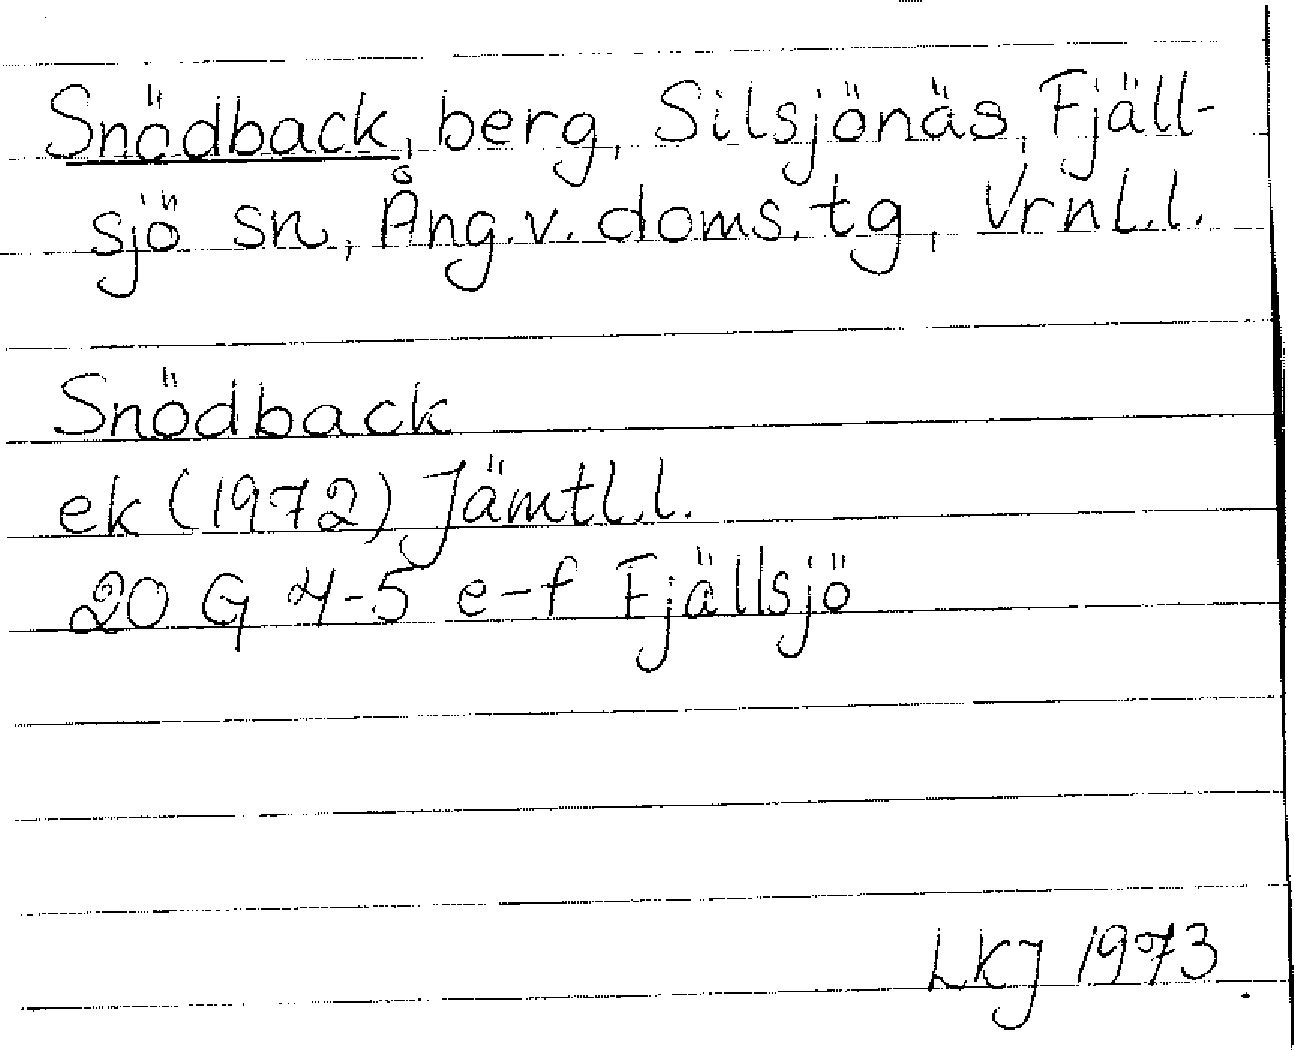 Snödback, berg, Silsjönäs, Fjäll-
sjö sn, Ång.v. doms.tg, Vrnl.l.
Snödback
ek (1972) Jämtl.l.
20 G 4-5 e-f Fjällsjö
LKJ 1973